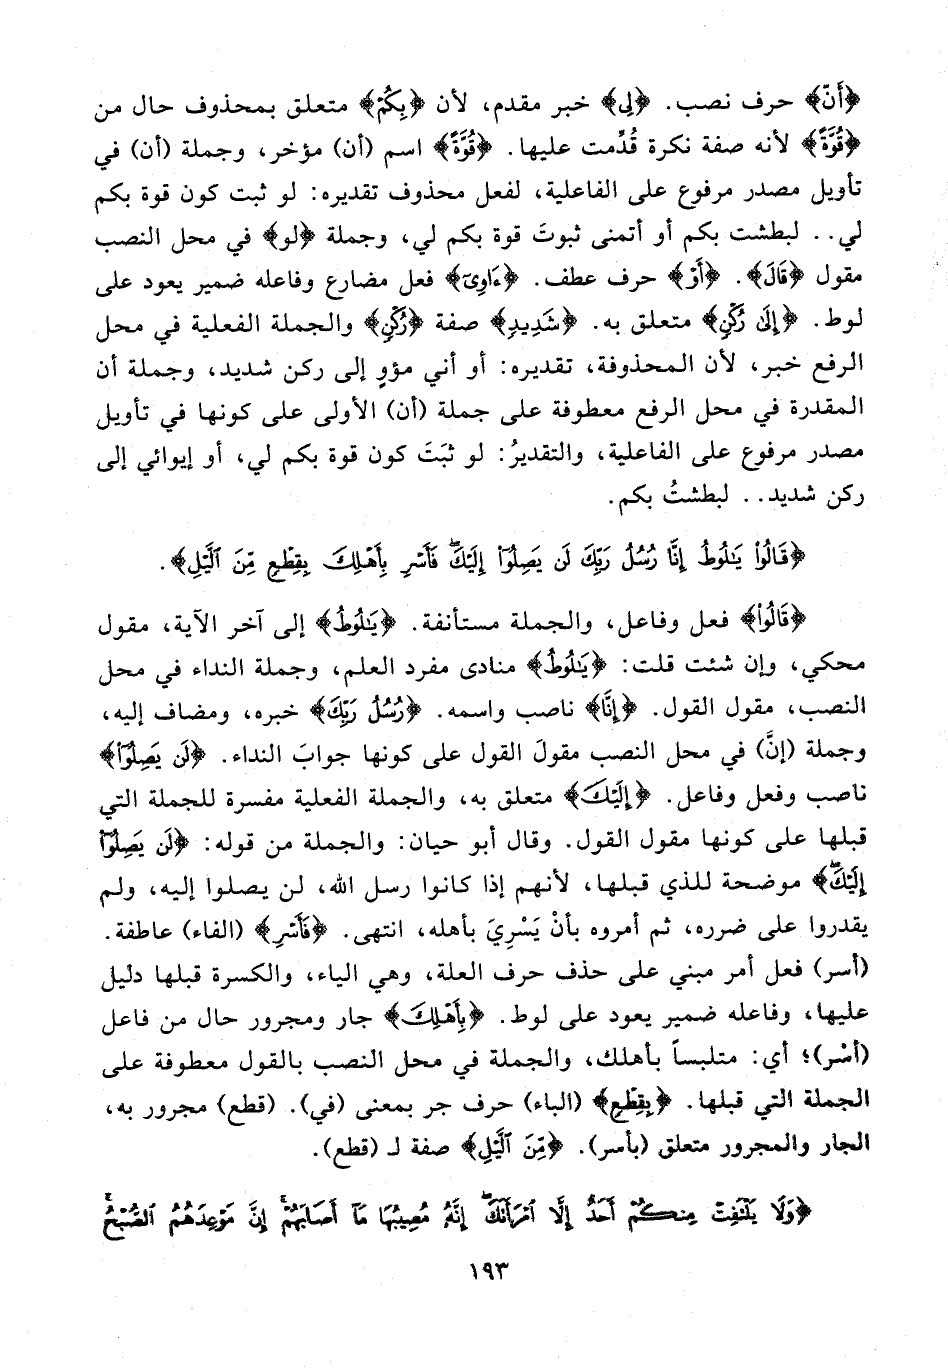 ﴿أَنَّ﴾ حرف نصب. ﴿لِى﴾ خبر مقدم، لأن ﴿بِكُمْ﴾ متعلق بمحذوف حال من
﴿قُوَّةً﴾ لأنه صفة نكرة قُدِّمت عليها. ﴿قُوَّةً﴾ اسم (أن) مؤخر، وجملة (أن) في
تأويل مصدر مرفوع على الفاعلية، لفعل محذوف تقديره: لو ثبت كون قوة بكم
لي.. لبطشت بكم أو أتمنى ثبوتَ قوة بكم لي، وجملة ﴿لو﴾ في محل النصب
مقول ﴿قَالَ﴾. ﴿أَوْ﴾ حرف عطف. ﴿ءَاوِىٓ﴾ فعل مضارع وفاعله ضمير يعود على
لوط. ﴿إِلَىٰ رُكْنٍ﴾ متعلق به. ﴿شَدِيدٍ﴾ صفة ﴿رُكْنٍ﴾ والجملة الفعلية في محل
الرفع خبر، لأن المحذوفة، تقديره: أو أني مؤوٍ إلى ركن شديد، وجملة أن
المقدرة في محل الرفع معطوفة على جملة (أن) الأولى على كونها في تأويل
مصدر مرفوع على الفاعلية، والتقديرُ: لو ثبَتَ كون قوة بكم لي، أو إيوائي إلى
ركن شديد.. لبطشتُ بكم.
﴿قَالُوا۟ يَـٰلُوطُ إِنَّا رُسُلُ رَبِّكَ لَن يَصِلُوٓا۟ إِلَيْكَ ۖ فَأَسْرِ بِأَهْلِكَ بِقِطْعٍ مِّنَ ٱلَّيْلِ﴾.
﴿قَالُوا۟﴾ فعل وفاعل، والجملة مستأنفة. ﴿يَـٰلُوطُ﴾ إلى آخر الآية، مقول
محكي، وإن شئت قلت: ﴿يَـٰلُوطُ﴾ منادى مفرد العلم، وجملة النداء في محل
النصب، مقول القول. ﴿إِنَّا﴾ ناصب واسمه. ﴿رُسُلُ رَبِّكَ﴾ خبره، ومضاف إليه،
وجملة (إنَّ) في محل النصب مقولَ القول على كونها جوابَ النداء. ﴿لَن يَصِلُوٓا۟﴾
ناصب وفعل وفاعل. ﴿إِلَيْكَ﴾ متعلق به، والجملة الفعلية مفسرة للجملة التي
قبلها على كونها مقول القول. وقال أبو حيان: والجملة من قوله: ﴿لَن يَصِلُوٓا۟
إِلَيْكَ ۖ﴾ موضحة للذي قبلها، لأنهم إذا كانوا رسل الله، لن يصلوا إليه، ولم
يقدروا على ضرره، ثم أمروه بأنْ يَسْرِيَ بأهله، انتهى. ﴿فَأَسْرِ﴾ (الفاء) عاطفة.
(أسر) فعل أمر مبني على حذف حرف العلة، وهي الياء، والكسرة قبلها دليل
عليها، وفاعله ضمير يعود على لوط. ﴿بِأَهْلِكَ﴾ جار ومجرور حال من فاعل
(أسْر)؛ أي: متلبساً بأهلك، والجملة في محل النصب بالقول معطوفة على
الجملة التي قبلها. ﴿بِقِطْعٍ﴾ (الباء) حرف جر بمعنى (في). (قطع) مجرور به،
الجار والمجرور متعلق (بأسر). ﴿مِّنَ ٱلَّيْلِ﴾ صفة لـ (قطع).
﴿وَلَا يَلْتَفِتْ مِنكُمْ أَحَدٌ إِلَّا ٱمْرَأَتَكَ ۖ إِنَّهُۥ مُصِيبُهَا مَآ أَصَابَهُمْ ۚ إِنَّ مَوْعِدَهُمُ ٱلصُّبْحُ ۚ
١٩٣